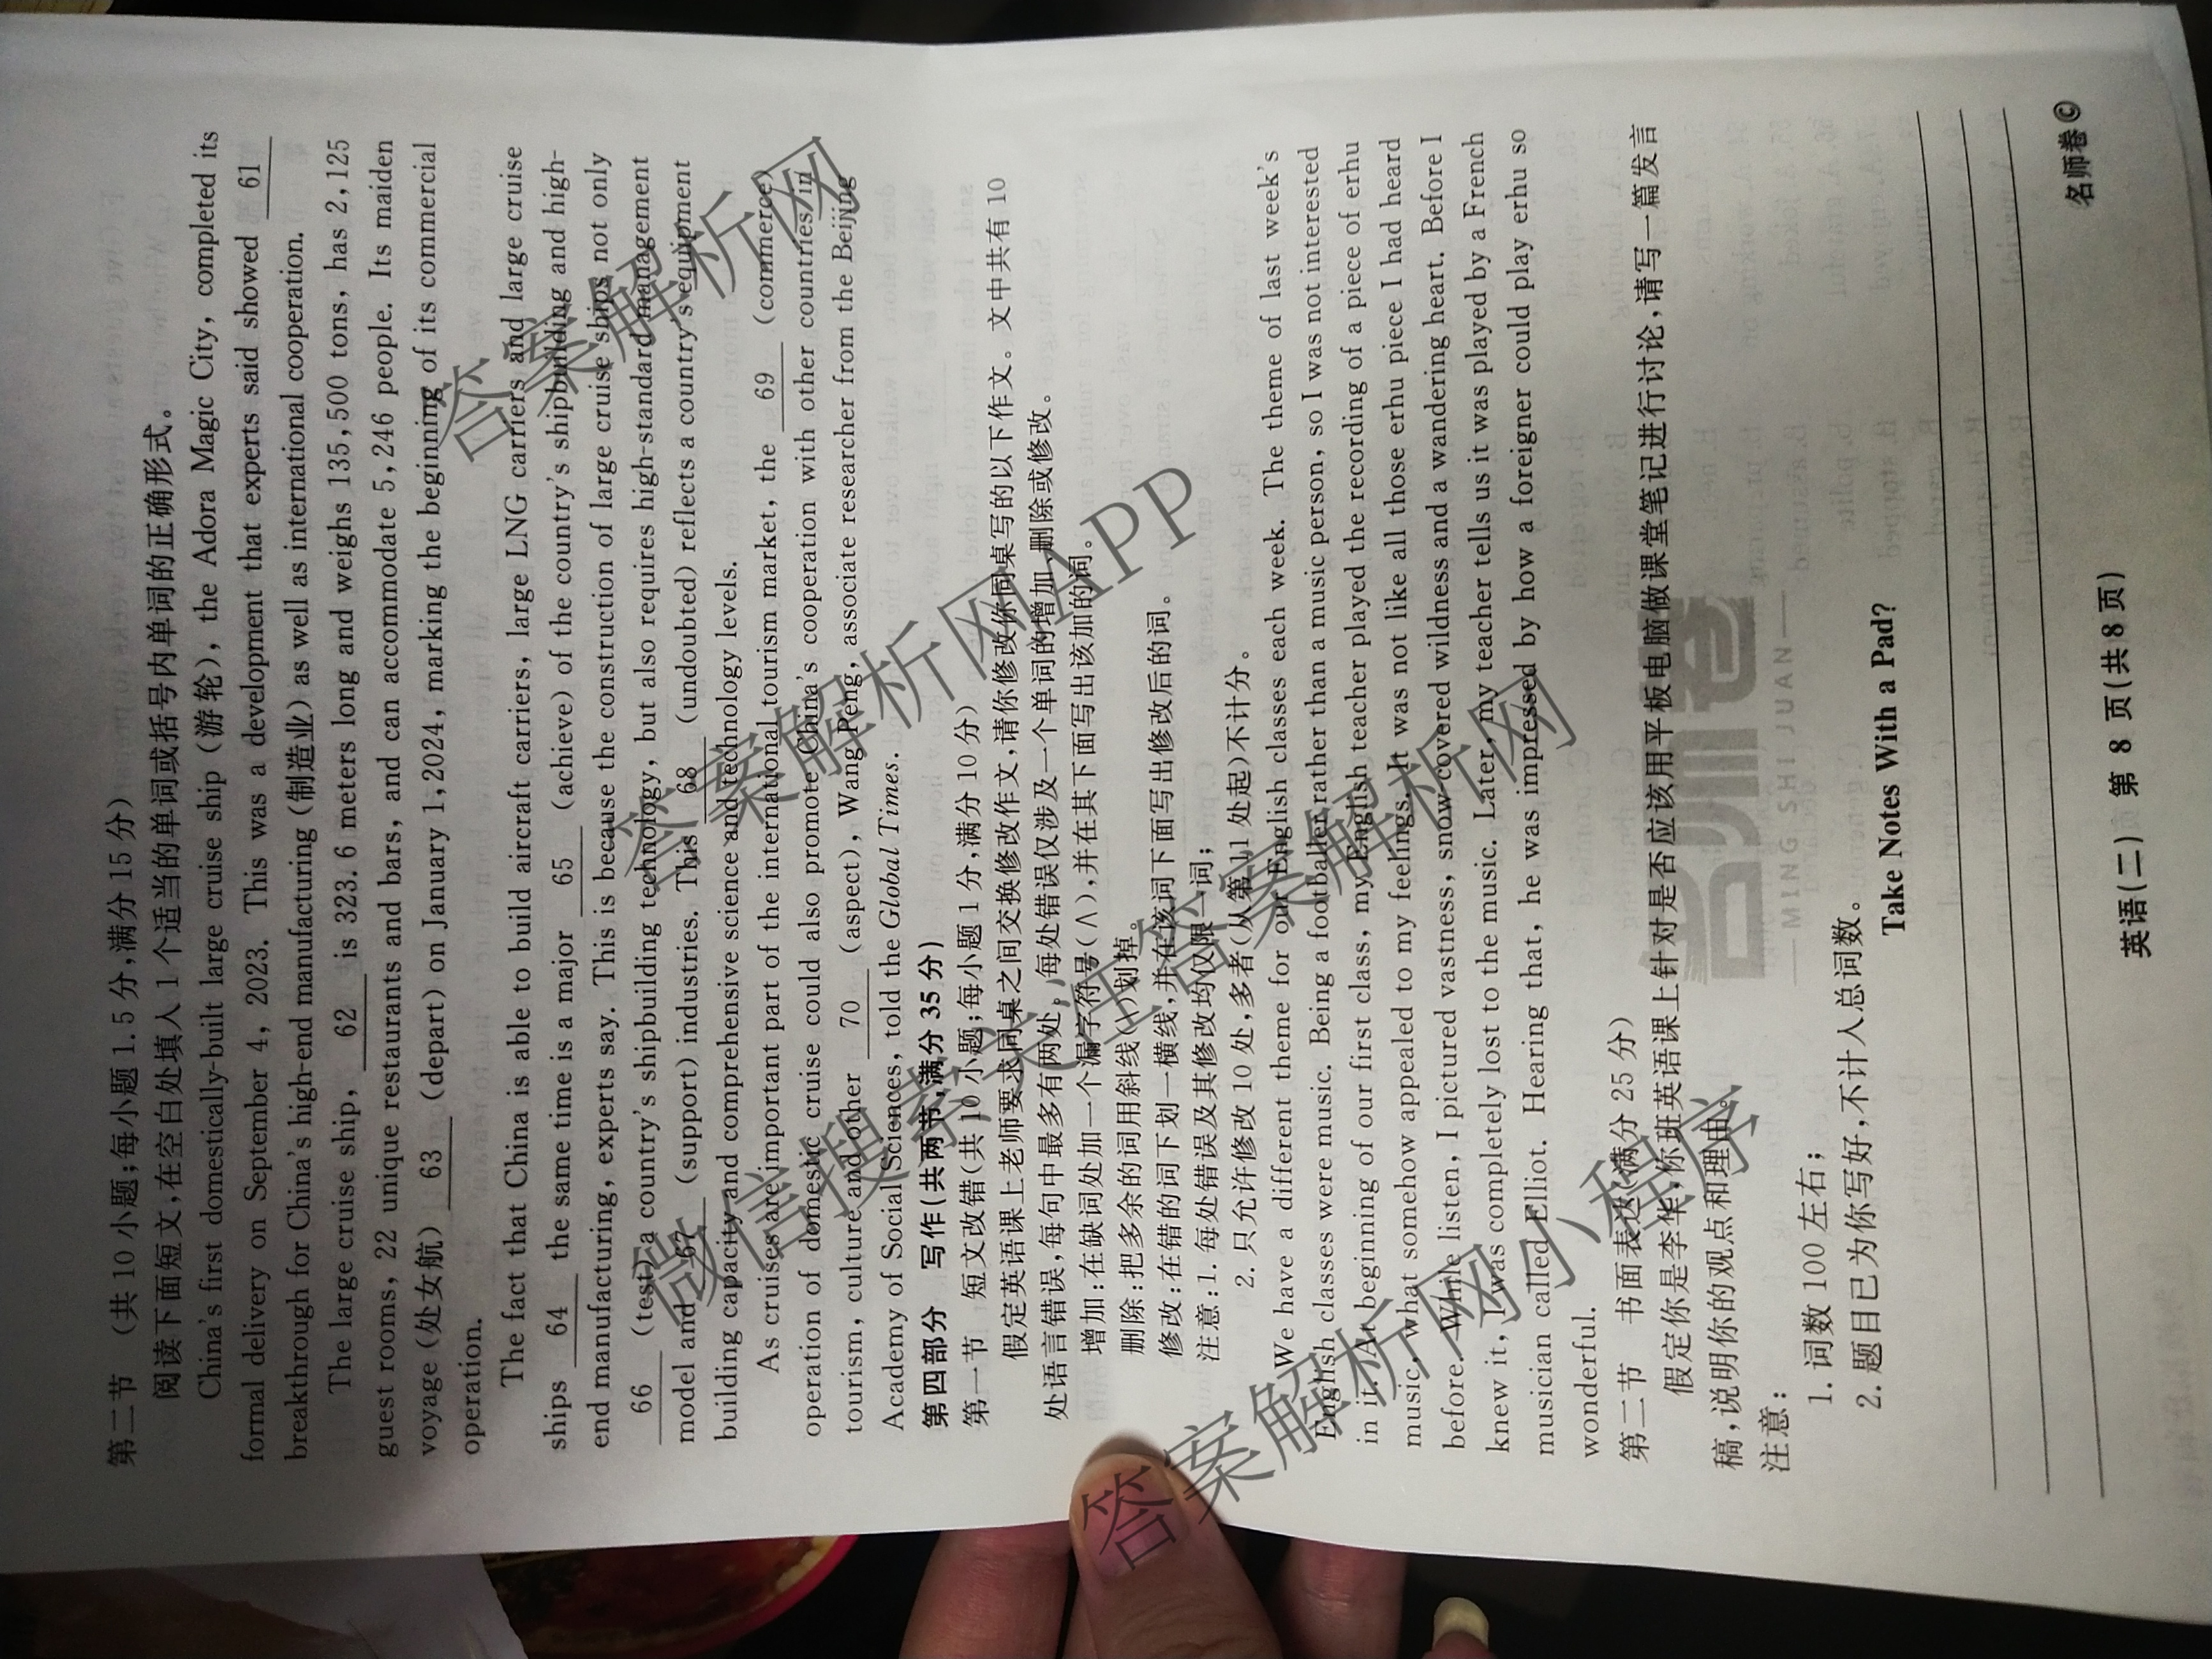 第二节 (共 10 小题;每小题 1.5 分,满分 15 分)
阅读下面短文,在空白处填入 1 个适当的单词或括号内单词的正确形式。
China's first domestically-built large cruise ship (游轮), the Adora Magic City, completed its
formal delivery on September 4, 2023. This was a development that experts said showed 61
breakthrough for China's high-end manufacturing (制造业) as well as international cooperation.
The large cruise ship, 62 is 323.6 meters long and weighs 135,500 tons, has 2,125
guest rooms, 22 unique restaurants and bars, and can accommodate 5,246 people. Its maiden
voyage (处女航) 63 (depart) on January 1,2024, marking the beginning of its commercial
operation.
The fact that China is able to build aircraft carriers, large LNG carriers and large cruise
ships 64 the same time is a major 65 (achieve) of the country's shipbuilding and high-
end manufacturing, experts say. This is because the construction of large cruise ships not only
66 (test) a country's shipbuilding technology, but also requires high-standard management
model and 67 (support) industries. This 68 (undoubted) reflects a country's equipment
building capacity and comprehensive science and technology levels.
As cruises are important part of the international tourism market, the 69 (commerce)
operation of domestic cruise could also promote China's cooperation with other countries in
tourism, culture and other 70 (aspect), Wang Peng, associate researcher from the Beijing
Academy of Social Sciences, told the Global Times.
第四部分 写作(共两节,满分 35 分)
第一节 短文改错(共 10 小题;每小题 1 分,满分 10 分)
假定英语课上老师要求同桌之间交换修改作文,请你修改你同桌写的以下作文。文中共有 10
处语言错误,每句中最多有两处。每处错误仅涉及一个单词的增加、删除或修改。
增加:在缺词处加一个漏字符号(∧),并在其下面写出该加的词。
删除:把多余的词用斜线(\)划掉。
修改:在错的词下划一横线,并在该词下面写出修改后的词。
注意:1. 每处错误及其修改均仅限一词;
2. 只允许修改 10 处,多者(从第 11 处起)不计分。
We have a different theme for our English classes each week. The theme of last week's
English classes were music. Being a footballer rather than a music person, so I was not interested
in it. At beginning of our first class, my English teacher played the recording of a piece of erhu
music, what somehow appealed to my feelings. It was not like all those erhu piece I had heard
before. While listen, I pictured vastness, snow-covered wildness and a wandering heart. Before I
knew it, I was completely lost to the music. Later, my teacher tells us it was played by a French
musician called Elliot. Hearing that, he was impressed by how a foreigner could play erhu so
wonderful.
第二节 书面表达(满分 25 分)
假定你是李华,你班英语课上针对是否应该用平板电脑做课堂笔记进行讨论,请写一篇发言
稿,说明你的观点和理由。
注意:
1. 词数 100 左右;
2. 题目已为你写好,不计入总词数。
Take Notes With a Pad?
英语(二) 第 8 页(共 8 页)
名师卷 ©
名师卷
MING SHI JUAN
答案解析网
答案解析网APP
微信搜索关注答案解析网
答案解析网小程序